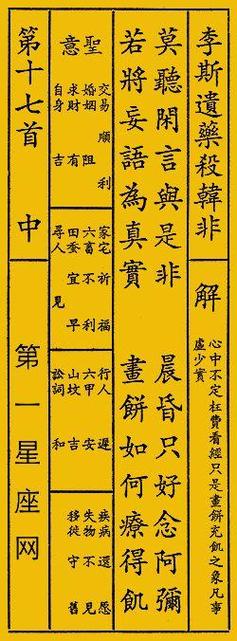 李斯遺藥殺韓非
解
心中不定枉費看經只是畫餅充飢之象凡事
虛少實
莫聽閑言與是非 晨昏只好念阿彌
若將妄語為真實 畫餅如何療得飢
聖意
交易 順利
婚姻 阻
求財 有
自身 吉
家宅 祈福
六畜 不利
田蚕 宜早
尋人 見
行人 遲
六甲 安
山坟 吉
訟詞 和
疾病 還愿
失物 不見
移徙 守舊
第十七首 中
第一星座网